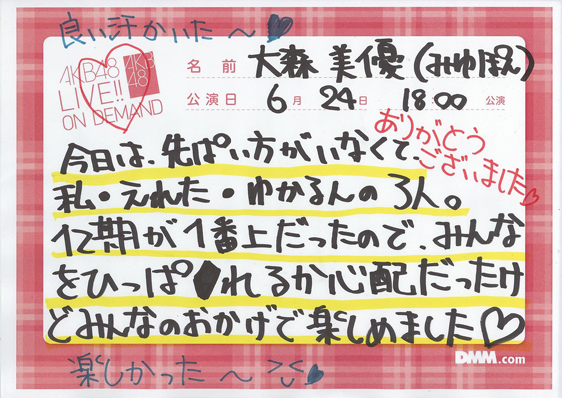 良い汗かいた～
AKB48
LIVE!!
ON DEMAND
AKB
48
名前 大森美優(みゆぽん)
公演日 6月24日 18:00公演
ありがとう
ございました♡
今日は、先ぱい方がいなくて、
私・えれた・ゆかるんの3人。
12期が1番上だったので、みんな
をひっぱれるか心配だったけ
どみんなのおかげで楽しめました♡
DMM.com
楽しかった～